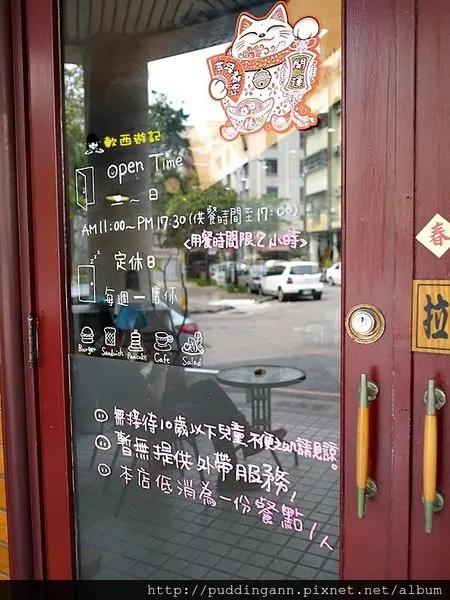 開運
軟西遊記
open Time
～日
AM11:00～PM17:30(供餐時間至17:00)
<用餐時間限2小時>
春
定休日
每週一店休
拉
Burger Sandwich Pancake Cafe Salad
無接待10歲以下兒童不便之処請見諒。
暫無提供外帶服務！
本店低消為一份餐點/人
http://puddingann.pixnet.net/album